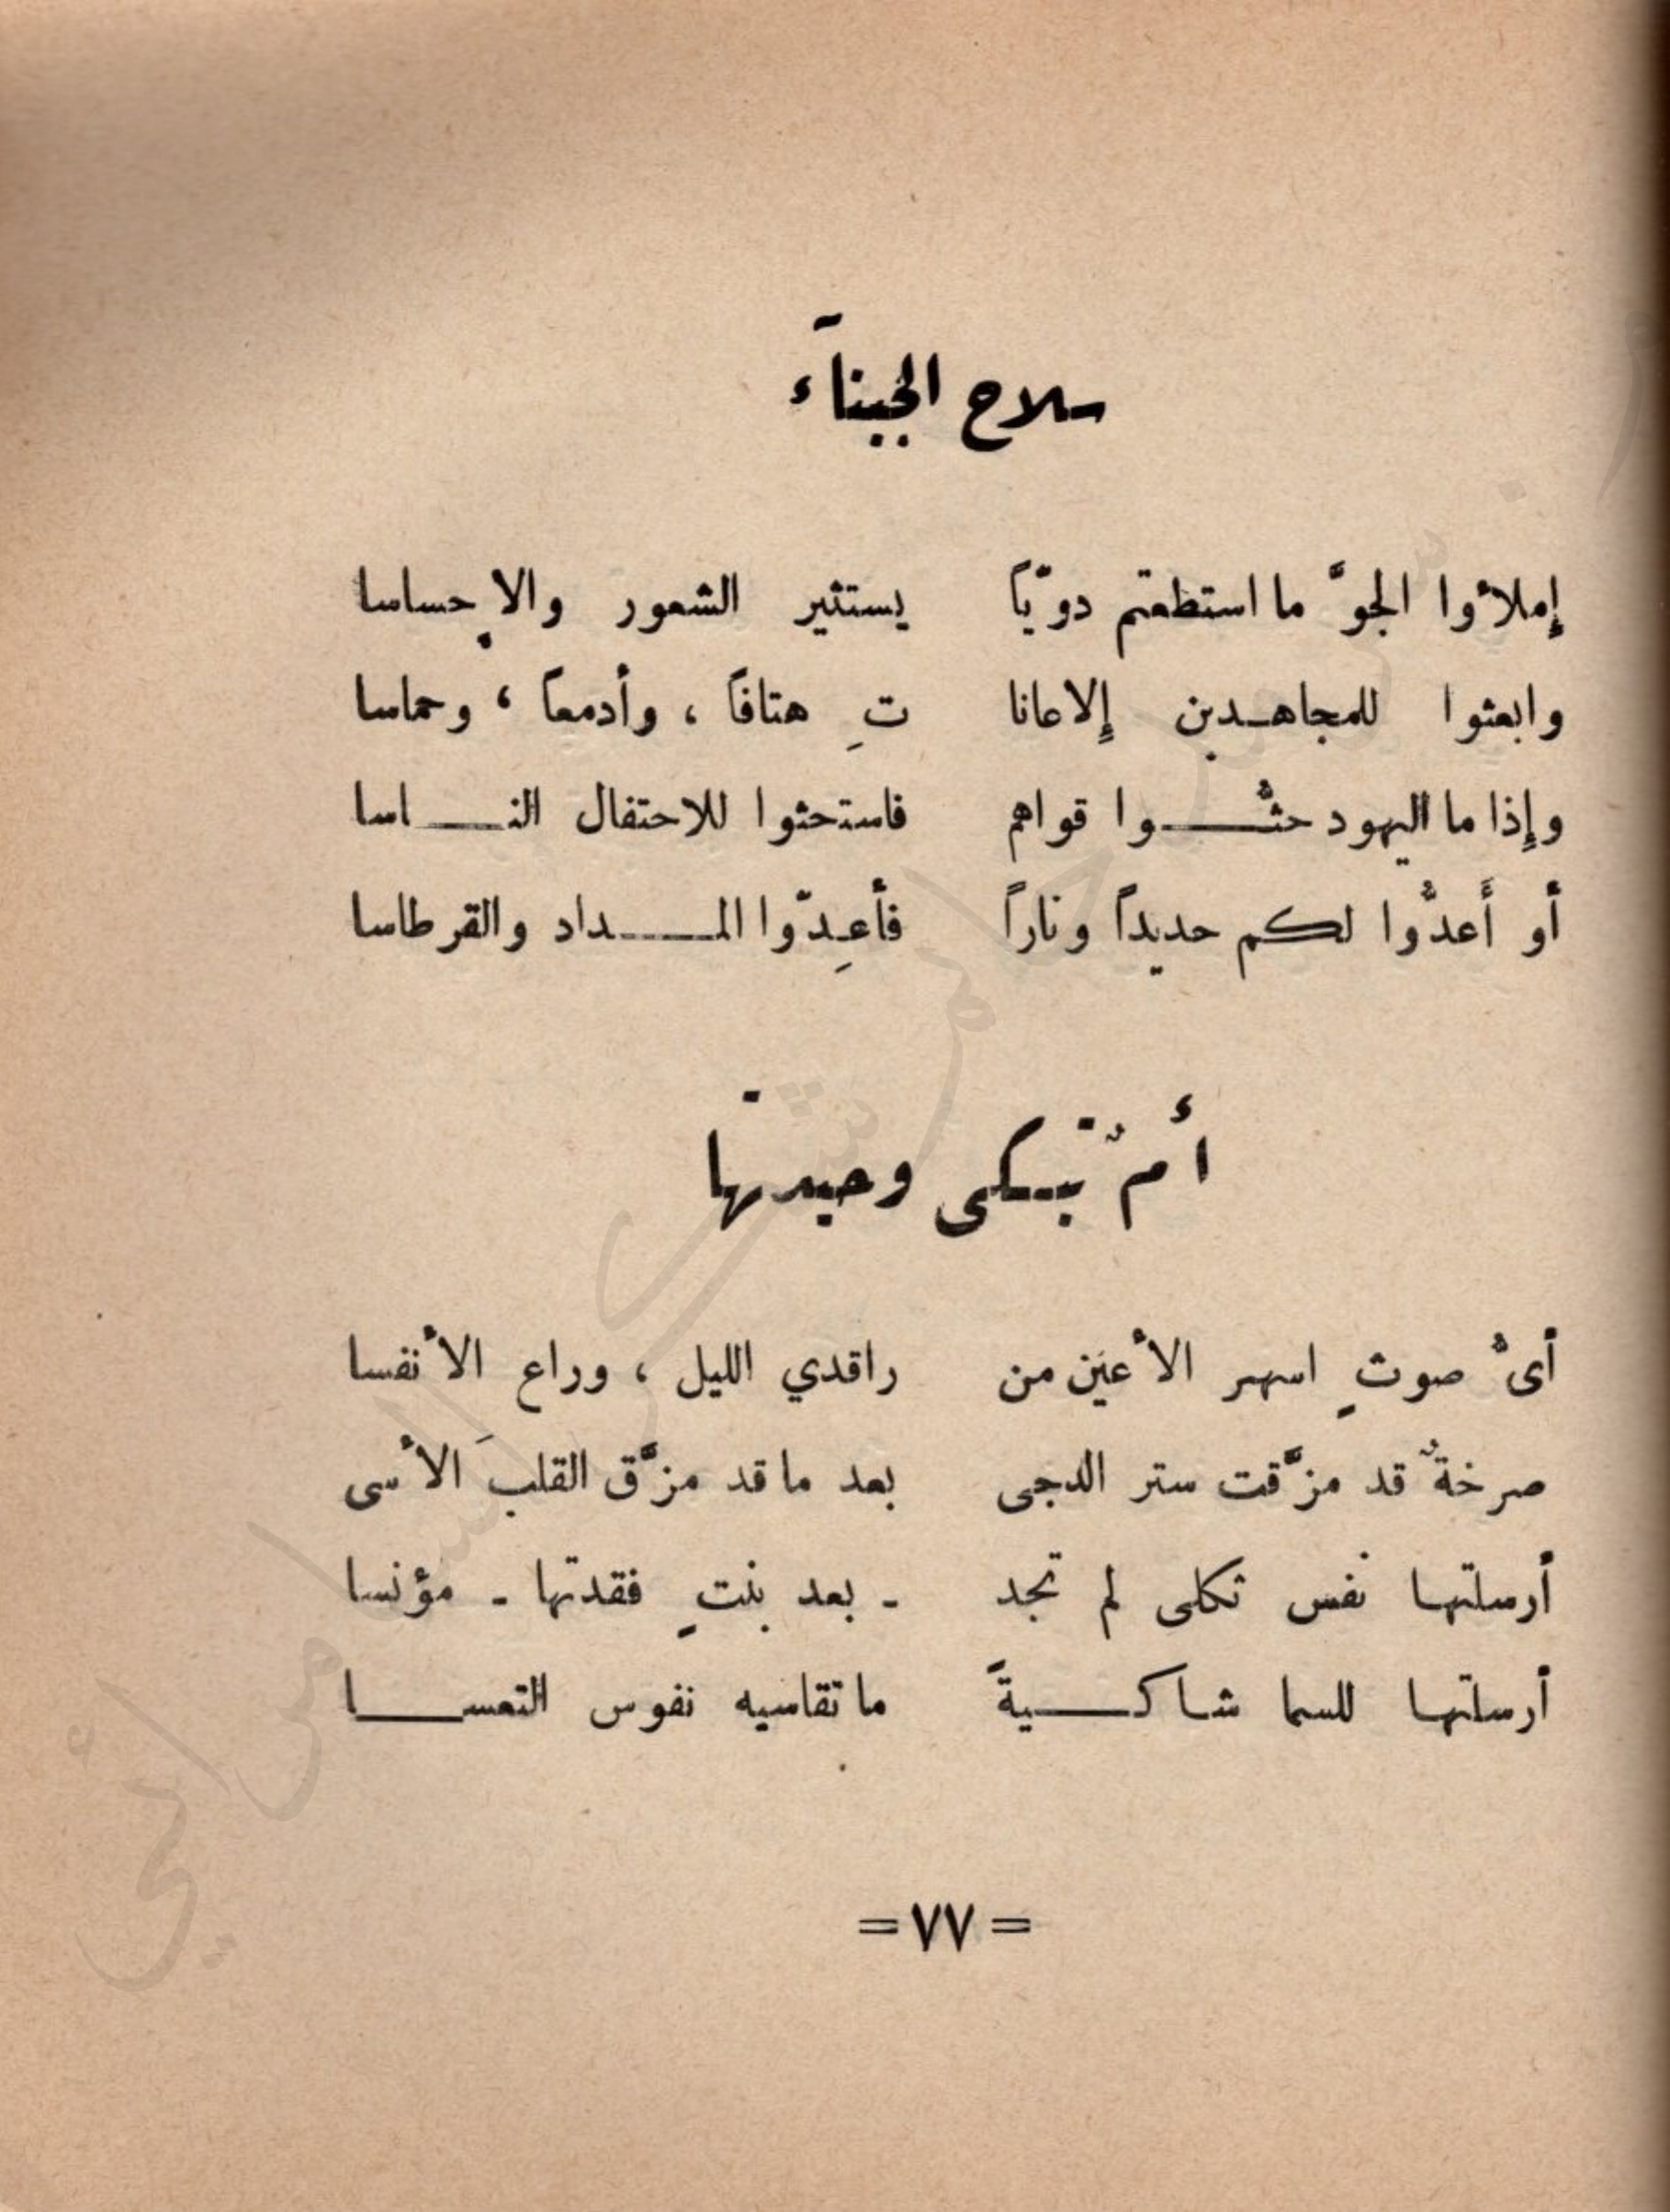 سلاح الجبناء
إملأوا الجوَّ ما استطعتم دويّاً يستثير الشعور والإحساسا
وابعثوا للمجاهدين إلاعانا تِ هتافاً ، وأدمعاً ، وحماسا
وإذا ما اليهود حثُّوا قواهم فاستحثوا للاحتفال الناسا
أو أَعدُّوا لكم حديداً وناراً فأعِدّوا المداد والقرطاسا
أمٌ تبكى وحيدتها
أىُّ صوتٍ اسهر الأعيَن من راقدي الليل ، وراع الأنفسا
صرخةٌ قد مزَّقت ستر الدجى بعد ما قد مزَّق القلبَ الأسى
أرسلتها نفس ثكلى لم تجد - بعد بنتٍ فقدتها - مؤنسا
أرسلتها للسما شاكيةً ما تقاسيه نفوس التعسا
= ٧٧ =